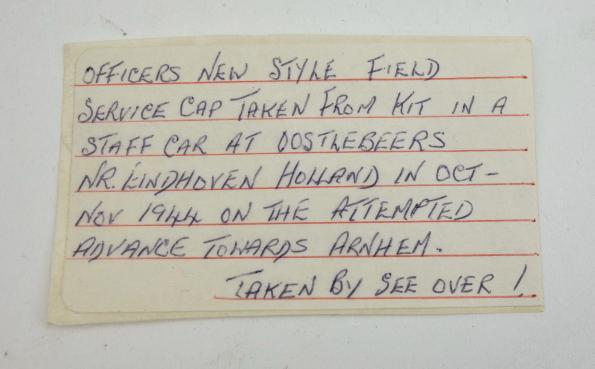 OFFICERS NEW STYLE FIELD
SERVICE CAP TAKEN FROM KIT IN A
STAFF CAR AT OOSTLEBEERS
NR. EINDHOVEN HOLLAND IN OCT-
NOV 1944 ON THE ATTEMPTED
ADVANCE TOWARDS ARNHEM.
TAKEN BY SEE OVER !